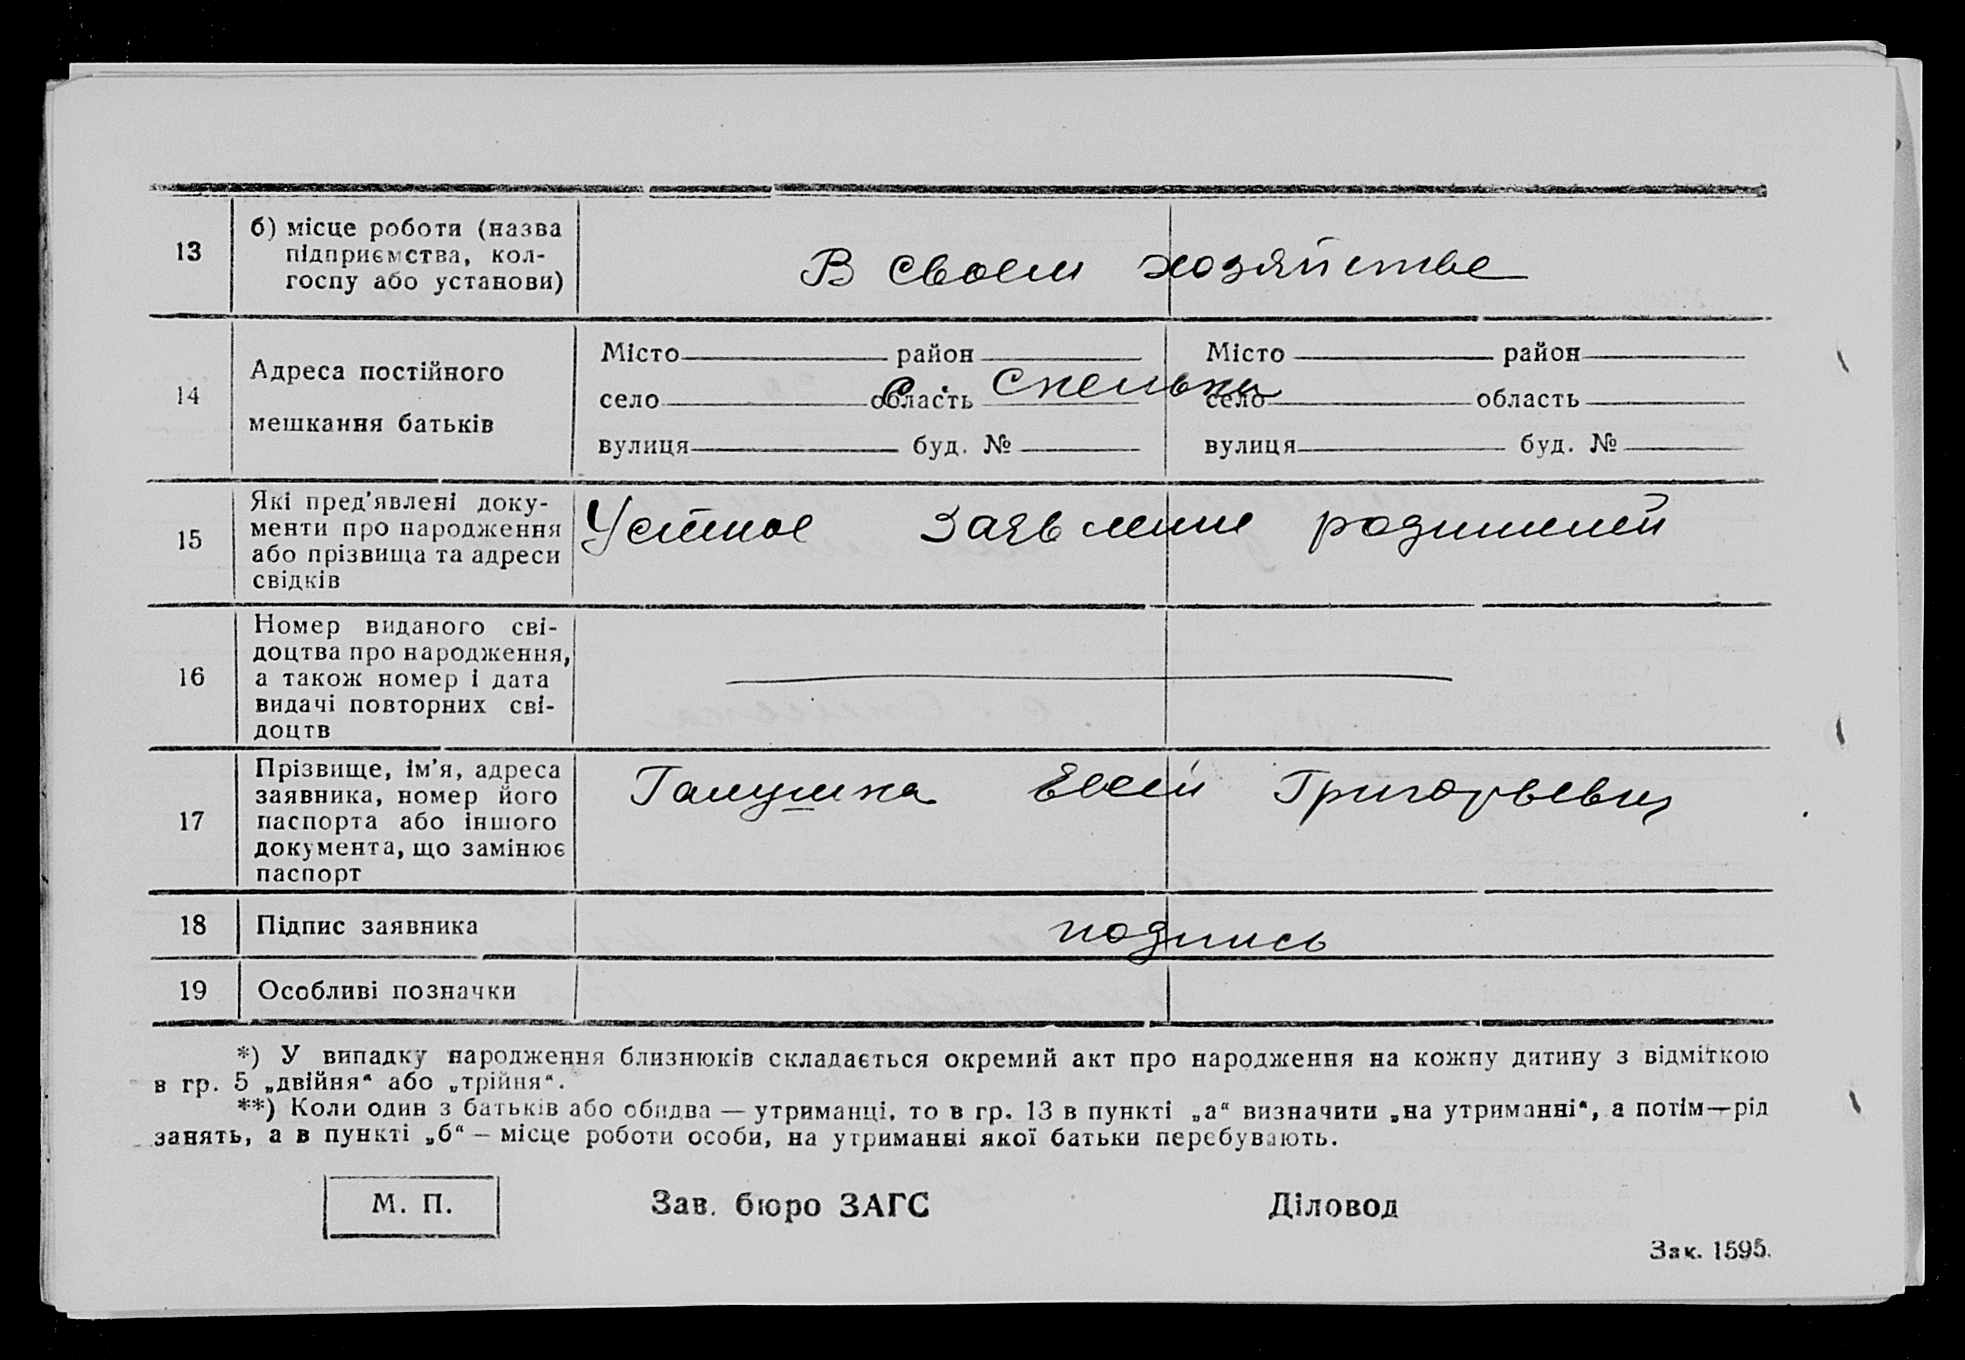 13
б) місце роботи (назва
підприємства, кол-
госпу або установи)
В своем хозяйстве
14
Адреса постійного
мешкання батьків
Місто район
село область
вулиця буд. №
Місто район
село область
вулиця буд. №
с. Спельки
15
Які пред'явлені доку-
менти про народження
або прізвища та адреси
свідків
Устное заявление родителей
16
Номер виданого сві-
доцтва про народження,
а також номер і дата
видачі повторних сві-
доцтв
17
Прізвище, ім'я, адреса
заявника, номер його
паспорта або іншого
документа, що замінює
паспорт
Галушка Евсей Григорьевич
18
Підпис заявника
подпись
19
Особливі позначки
*) У випадку народження близнюків складається окремий акт про народження на кожну дитину з відміткою
в гр. 5 „двійня“ або „трійня“.
**) Коли один з батьків або обидва — утриманці, то в гр. 13 в пункті „а“ визначити „на утриманні“, а потім—рід
занять, а в пункті „б“ — місце роботи особи, на утриманні якої батьки перебувають.
М. П.
Зав. бюро ЗАГС
Діловод
Зак. 1595.